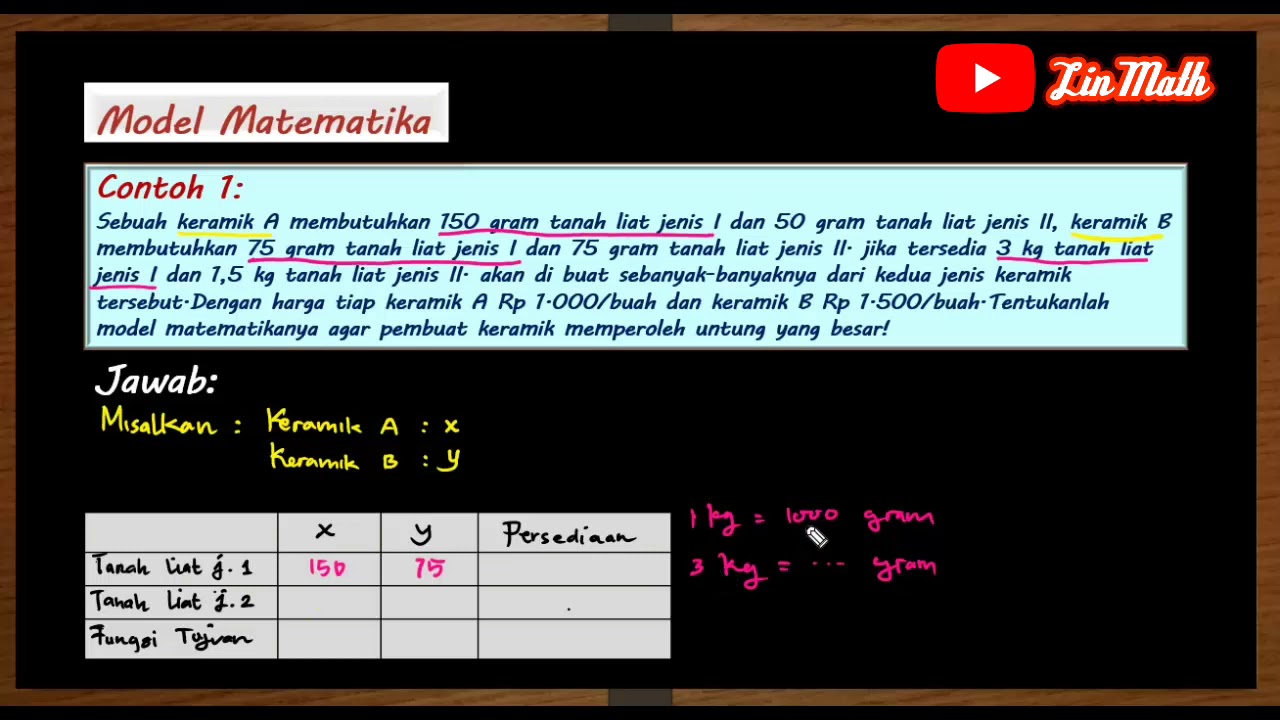 LinMath
Model Matematika
Contoh 1:
Sebuah keramik A membutuhkan 150 gram tanah liat jenis I dan 50 gram tanah liat jenis II, keramik B
membutuhkan 75 gram tanah liat jenis I dan 75 gram tanah liat jenis II. jika tersedia 3 kg tanah liat
jenis I dan 1,5 kg tanah liat jenis II. akan di buat sebanyak-banyaknya dari kedua jenis keramik
tersebut.Dengan harga tiap keramik A Rp 1.000/buah dan keramik B Rp 1.500/buah.Tentukanlah
model matematikanya agar pembuat keramik memperoleh untung yang besar!
Jawab:
Misalkan : Keramik A : x
Keramik B : y
x y Persediaan
Tanah liat j.1 150 75
Tanah liat j.2
Fungsi Tujuan
1 kg = 1000 gram
3 kg = ... gram